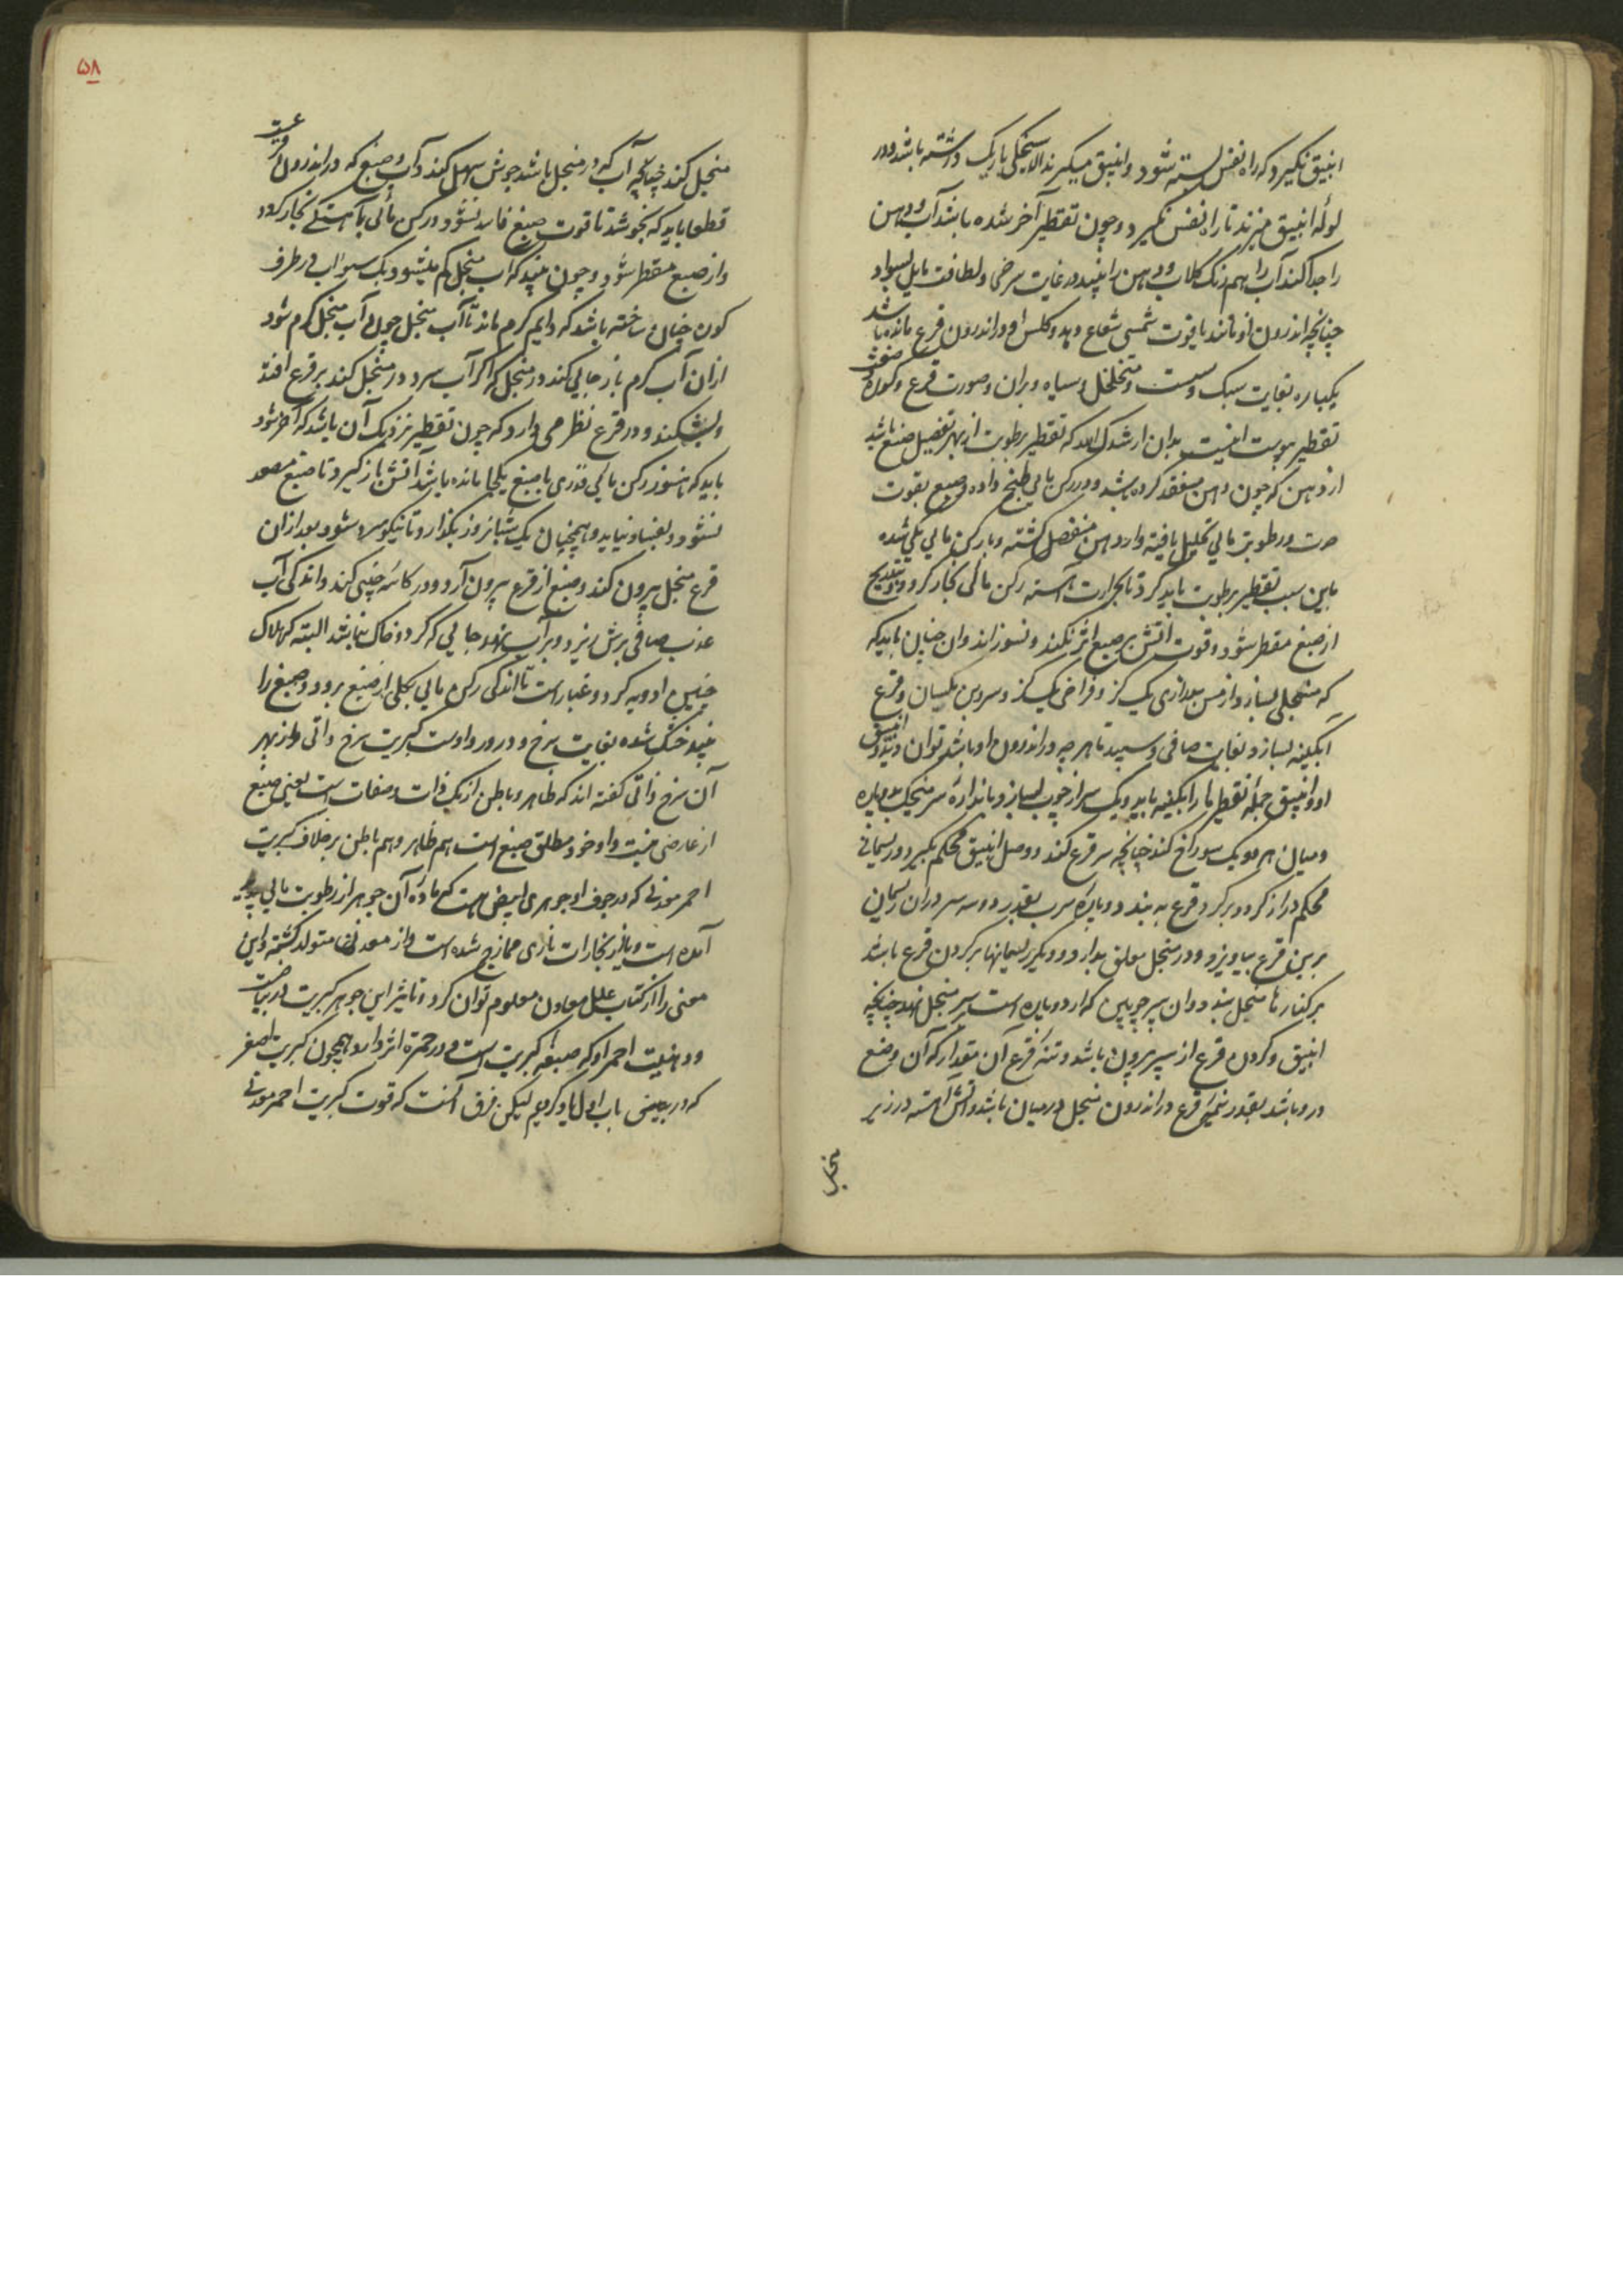 انبیق نگیرد که راه نفس بسته شود و انبیق میگیرند الا سیخکی باریک داشته باشد و در
لوله انبیق میزند تا راه نفس نگیرد و چون تقطیر آخر شده باشد آب و دهن
را جدا کند آب را هم رنگ گلاب و دهن را بیند در غایت سرخی و لطافت مایل بسواد
چنانچه اندرون او مانند یاقوت شمسی شعاع دهد و کلس او در اندرون قرع مانده باشد
یکباره بغایت سبک و سست و متخلخل و سیاه و بران و صورت قرع و کوره
تقطیر یبوست اینست بدان ارشدک الله که تقطیر رطوبت از بهر تفصیل صبغ باشد
از دهن که چون دهن منعقد کرده باشد و در رکن مائی طبخ داده و صبغ بقوت
حرت و رطوبت مائی تحلیل یافته و از دهن منفصل گشته و با رکن مائی یکی شده
باین سبب تقطیر رطوبت باید کرد تا بحرارت آهسته رکن مائی بخار گردد و بتدریج
از صبغ مقطر شود و قوت آتش بر صبغ اثر نکند و نسوزاند و آن چنان باید که
که منجلی بسازد از مس بدرازی یک گز و فراخی یک گز و سر و بن یکسان و قرع
آبگینه بسازد بغایت صافی و سپید تا هر چه در اندرون او باشد توان دید و انبیق
او و انبیق جمله تقطیرها را آبگینه باید و یک سر از چوب بسازد باندازه سر منجل بدو پاره
و میان هر دو یک سوراخ کند چنانچه سر قرع کند و وصل انبیق محکم بگیرد و ریسمانی
محکم دراز گرد بر گرد قرع به بندد و پاره سرب بقدر دو سه سیر در آن ریسمان
بر بن قرع بیاویزد و در منجل معلق بدارد و دیگر ریسمانها بر گردن قرع باشد
بر کنارها منجل بندد و آن سر چوبین که از دو پاره است بر سر منجل نهد چنانچه
انبیق و گردن قرع از سر بیرون باشد و تنه قرع آن مقدار که آن وضع
در و باشد بقدر نیمه قرع در اندرون منجل در میان باشد و آتش آهسته در زیر
منجل
۵۸
منجل کند چنانچه آب که در منجل باشد جوش سهل کند و آب و صبغ که در اندرون قرعست
قطعا باید که نجوشد تا قوت صبغ فاسد نشود و رکن مائی بآهستگی بخار گردد
و از صبغ مقطر شود و چون بیند که آب منجل کم میشود و یک سبو آب در طرف
کوره چنان ساخته باشد که دایم گرم ماند تا آب منجل چون آب منجل کم شود
از آن آب گرم باز جائی کند در منجل که اگر آب سرد در منجل کند بر قرع افتد
و بشکند و در قرع نظر می دارد که چون تقطیر نزدیک آن باشد که آخر شود
باید که هنوز رکن مائی قدری با صبغ یکجا مانده باشد آتش باز گیرد تا صبغ مصعد
نشود و بفساد نیاید و همچنان یک شبانروز بگذارد تا نیکو سرد شود بعد از آن
قرع منجل بیرون کند و صبغ از قرع بیرون آرد و در کاسه چینی کند و اندکی آب
عذب صافی برش ریزد و بر آب نهد جائی که گرد و خاک نباشد البته که هلاک
چنین ادویه گرد و غبار است تا اندکی رکن مائی بکلی از صبغ برود و صبغ را
بیند خشک شده بغایت سرخ و درور و اوست کبریت سرخ ذاتی و از بهر
آن سرخ ذاتی گفته اند که ظاهر و باطن از یک ذات و صفات است یعنی صبغ
از عارضی نیست و او خود مطلق صبغ است هم ظاهر و هم باطن بر خلاف کبریت
احمر معدنی که در جوف او جوهری ابیض هست که ماده آن جوهر از رطوبت مائی پدید
آمده است و با غیر بخارات ناری ممازج شده است و از معدنها متولد گشته و این
معنی را از کتاب علل معادن معلوم توان کرد و تاثیر این جوهر کبریت در بیاضست
و دهنیت احمر او که صبغه کبریت است و در حمرة اثر دارد همچون کبریت اصفر
که در بعضی باب اول یاد کردیم لیکن فرق آنست که قوت کبریت احمر معدنی